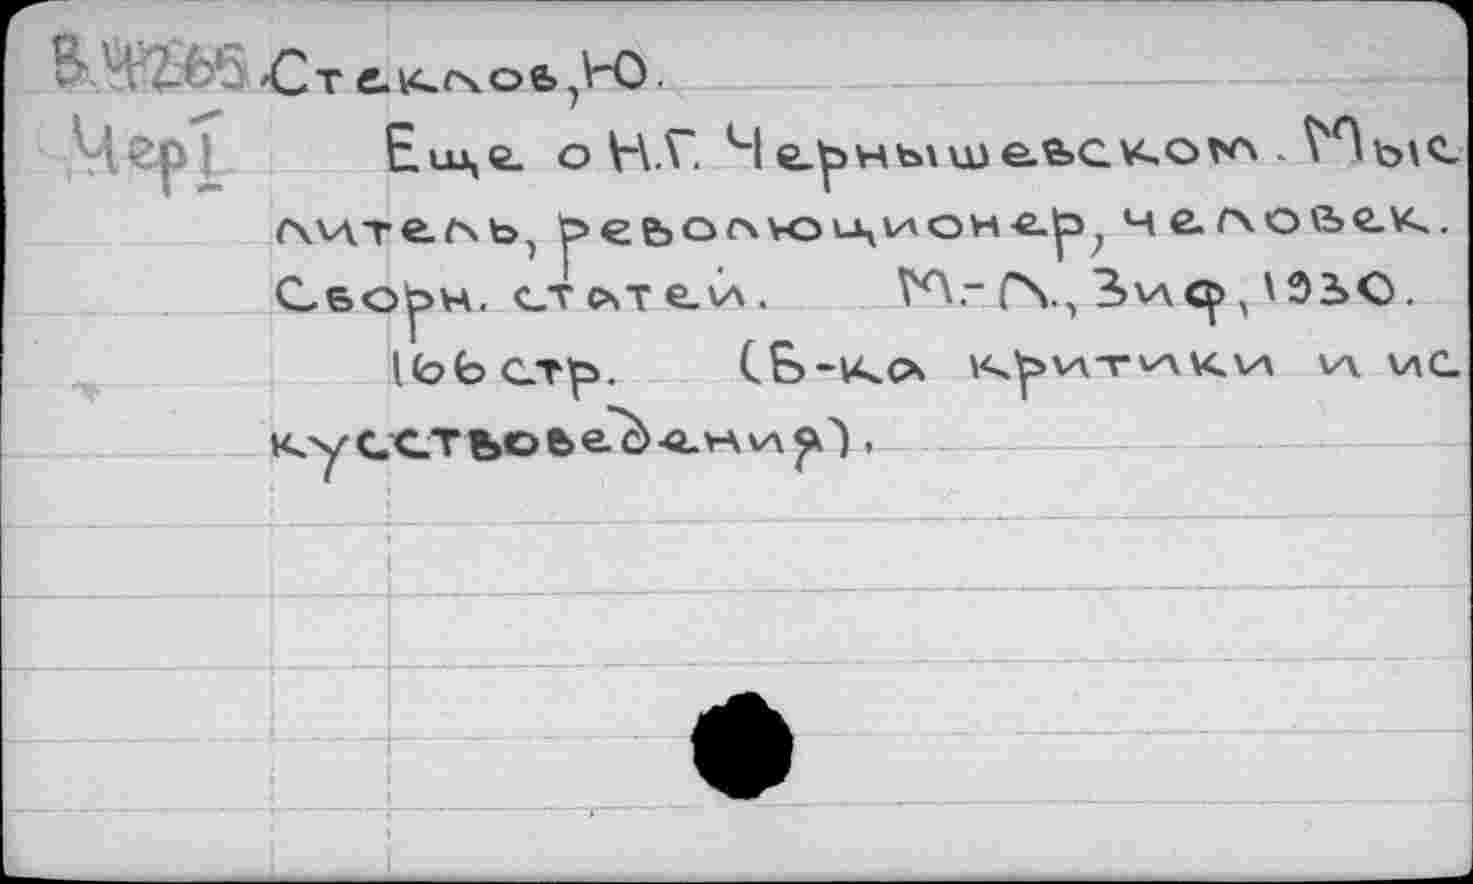 В.Ч265 Стеклов, Ю.
Чер1 Еще о Н.Г. Чернышевском. Мыс
литель, революционер, человек.
Сборн. статей. М.-Л., Зиф, 1930.
166 стр. (Б-ка критики и ис
кусствоведения).